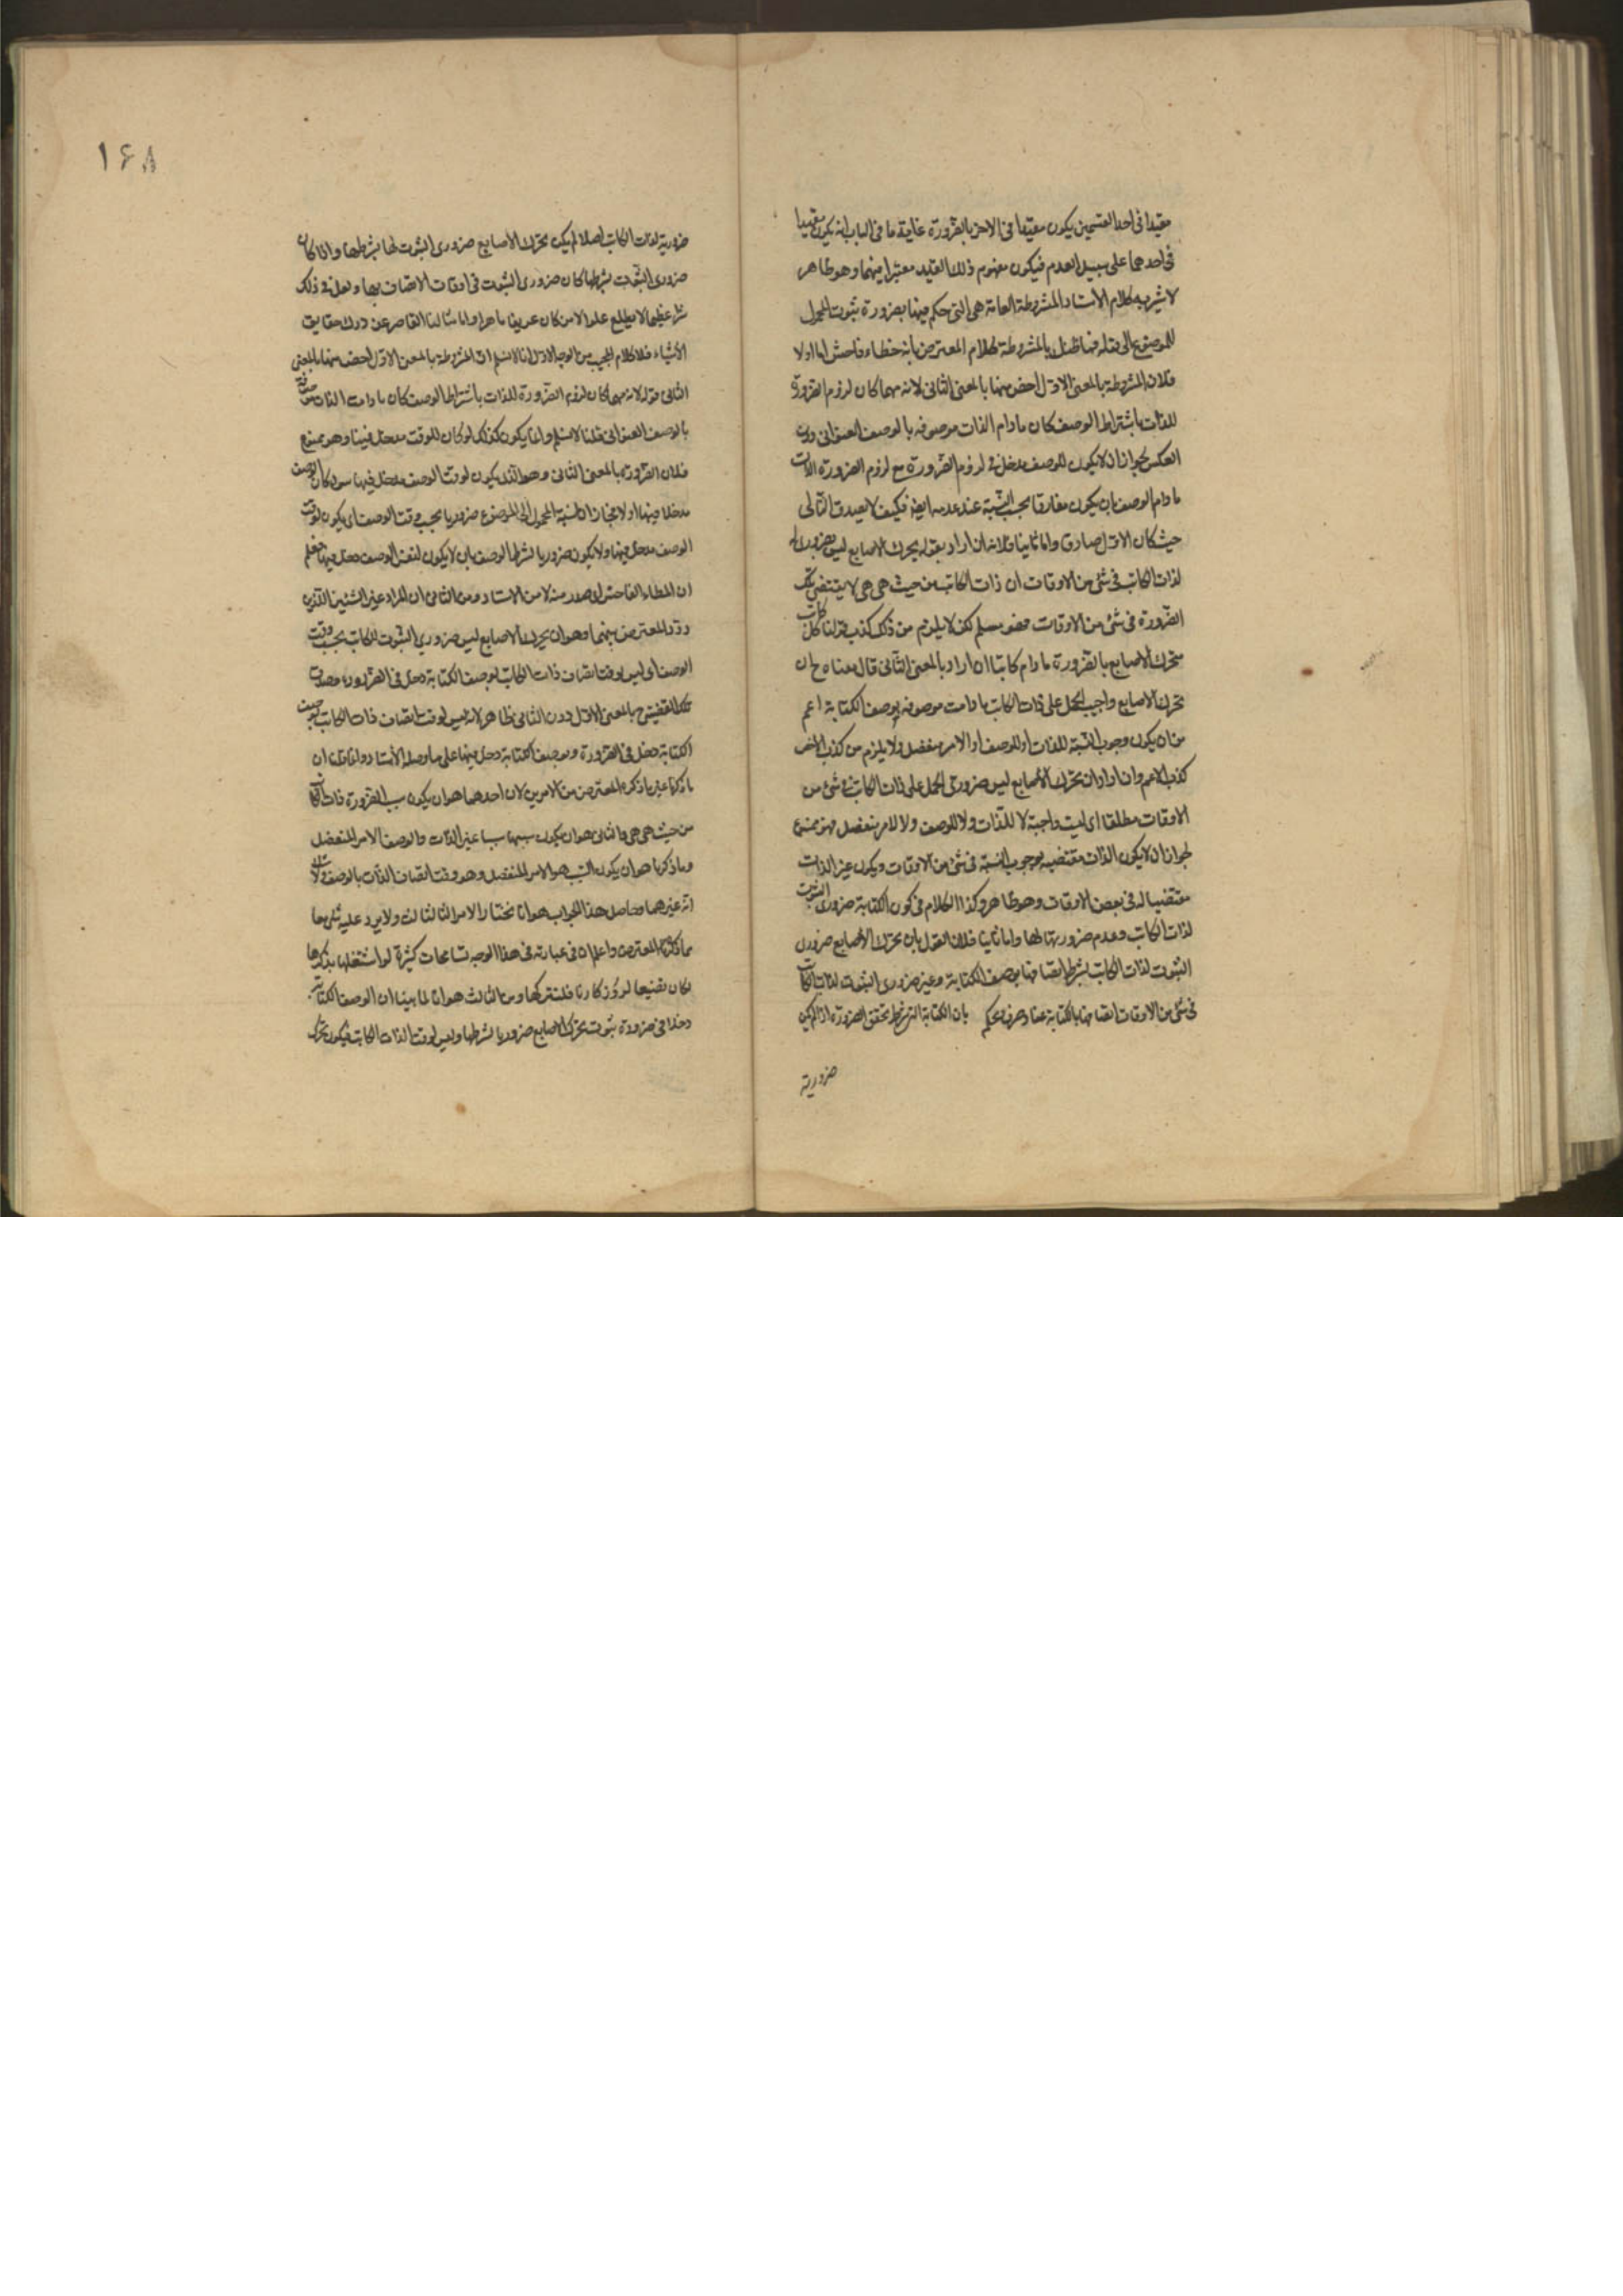 مقيدا فى احد القسمين يكون مقيدا فى الاخر بالضرورة غاية ما فى الباب انه يكون مقيدا
فى احدهما على سبيل العدم فيكون مفهوم ذلك القيد معتبرا فيهما وهو ظاهر
لا شبهة كلام الأستاد المشروطة العامة هى التى حكم فيها بضرورة ثبوت المحمول
للموضوع الى قوله فما ظنك بالمشروطة كلام المعترض بانه خطاء فاحش اما اولا
فلان المشروطة بالمعنى الاول اخص منها بالمعنى الثانى لانه مهما كان لزوم الضرورة
للذات باشتراط الوصف كان ما دام الذات موصوفه بالوصف العنوانى دون
العكس لجواز ان لا يكون للوصف مدخل فى لزوم الضرورة مع لزوم الضرورة الذات
ما دام الوصف بان يكون مفارقا يجب النسبة عند عدمه ايضا فكيف لا يصدق الثانى
حيث كان الاول صادق واما ثانيا فلانه ان اراد بقوله تحرك الاصابع ليس بضرورى
لذات الكاتب فى شئ من الاوقات ان ذات الكاتب من حيث هى هى لا يقتضى تلك
الضرورة فى شئ من الاوقات فهو مسلم لكن لا يلزم من ذلك كذب قولنا كل كاتب
متحرك الاصابع بالضرورة ما دام كاتبا ان اراد بالمعنى الثانى قال معناه ح ان
تحرك الاصابع واجب الحمل على ذات الكاتب ما دامت موصوفه بوصف الكتابة اعم
من ان يكون وجوب النسبة للذات او للوصف او الامر منفصل ولا يلزم من كذب الاخص
كذب الاعم وان اراد ان تحرك الاصابع ليس ضرورى الحمل على ذات الكاتب فى شئ من
الاوقات مطلقا اى ليست واجبة لا للذات ولا للوصف ولا لامر منفصل فهو ممنوع
لجواز ان لا يكون الذات مقتضيه لوجوب النسبة فى شئ من الاوقات ويكون غير الذات
مقتضيا له فى بعض الاوقات وهو ظاهر وكذا الكلام فى كون الكتابة ضرورى الثبوت
لذات الكاتب وعدم ضروريتها لها واما ثانيا فلان القول بان تحرك الاصابع ضرورى
الثبوت لذات الكاتب بشرط اتصافها بوصف الكتابة وغير ضرورى الثبوت لذات الكاتب
فى شئ من الاوقات اتصافها بالكتابة عناد صرف وتحكم بان الكتابة التى شرط تحقق الضرورة اذا لم يكن
ضرورية
١۶٨
ضرورية لذات الكاتب اصلا لم يكن تحرك الأصابع ضرورى الثبوت لها بشرطها واذا كان
ضرورى الثبوت بشرطها كان ضرورى الثبوت فى اوقات الاتصاف بها ولعل فى ذلك
سرا عظيما لا يطلع عليه الا من كان عريفا ماهرا واما امثالنا القاصر عن درك حقايق
الأشياء فلا كلام المجيب من الوجه الاول انا لا نسلم ان المشروطة بالمعنى الاول اخص منها بالمعنى
الثانى قوله لانه مهما كان لزوم الضرورة للذات باشتراط الوصف كان ما دامت الذات موصوفة
بالوصف العنوانى قلنا لا نسلم وانما يكون كذلك لو كان للوقت مدخل فيها وهو ممنوع
فلان الضرورة بالمعنى الثانى وهو الذى يكون لوقت الوصف مدخل فيها سواء كان الوصف
مدخلا فيها او لا فجاز ان نسبة المحمول الى الموضوع ضروريا بحسب وقت الوصف اى يكون لوقت
الوصف مدخل فيها ولا يكون ضروريا بشرط الوصف بان لا يكون لنفس الوصف دخل فيها فعلم
ان الخطاء الفاحش انما صدر منه لا من الاستاد ومن الثانى ان المراد غير الشيئين اللذين
ردد المعترض بينهما وهو ان تحرك الاصابع ليس ضرورى الثبوت للكاتب بحسب وقت
الوصف اى ليس لوقت اتصاف ذات الكاتب بوصف الكتابة دخل فى الضرورة وصدق
تلك القضية ح بالمعنى الاول دون الثانى ظاهر لانه ليس لوقت اتصاف ذات الكاتب بوصف
الكتابة دخل فى الضرورة وبوصف الكتابة دخل فيها على ما وصله الأستاد وانما قلنا ان
ما ذكرنا غير ما ذكره المعترض من الامرين لان احدهما هو ان يكون سبب الضرورة ذات الكاتب
من حيث هى هى والثانى هو ان يكون سببها سببا غير الذات والوصف الامر المنفصل
وما ذكرنا هو ان يكون السبب هو الامر المنفصل وهو وقت اتصاف الذات بالوصف ولا شك
انه غيرهما وحاصل هذا الجواب هو انا نختار الامر الثالث ولا يرد عليه شئ مما
مما ذكره المعترض واعلم ان فى عبارته فى هذا الوجه تسامحات كثيرة لو اشتغلنا بذكرها
لكان تضييعا لروزكارنا فلنتركها ومن الثالث هو انا لما بينا ان الوصف الكتابة
دخلا فى ضرورة ثبوت تحرك الاصابع ضروريا بشرطها وليس لوقت الذات الكاتب فيكون تحرك